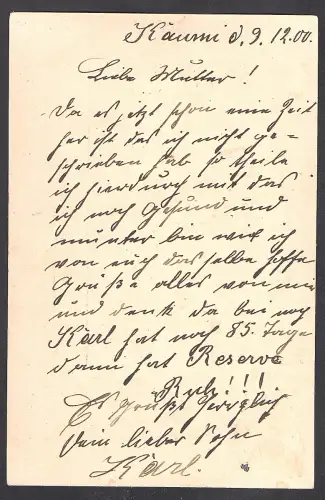 Kaumi d. 9. 12.00.
Liebe Mutter!
Da es jetzt schon eine Zeit
her ist das ich nicht ge=
schrieben hab so theile
ich hierdurch mit das
ich noch Gesund und
munter bin was ich
von euch das selbe hoffe
Grüße alles von mir
und denk da bei noch
Karl hat noch 85. Tage
dann hat Reserve
Ruh!!!
Es Grüßt herzlich
Dein lieber Sohn
Karl.